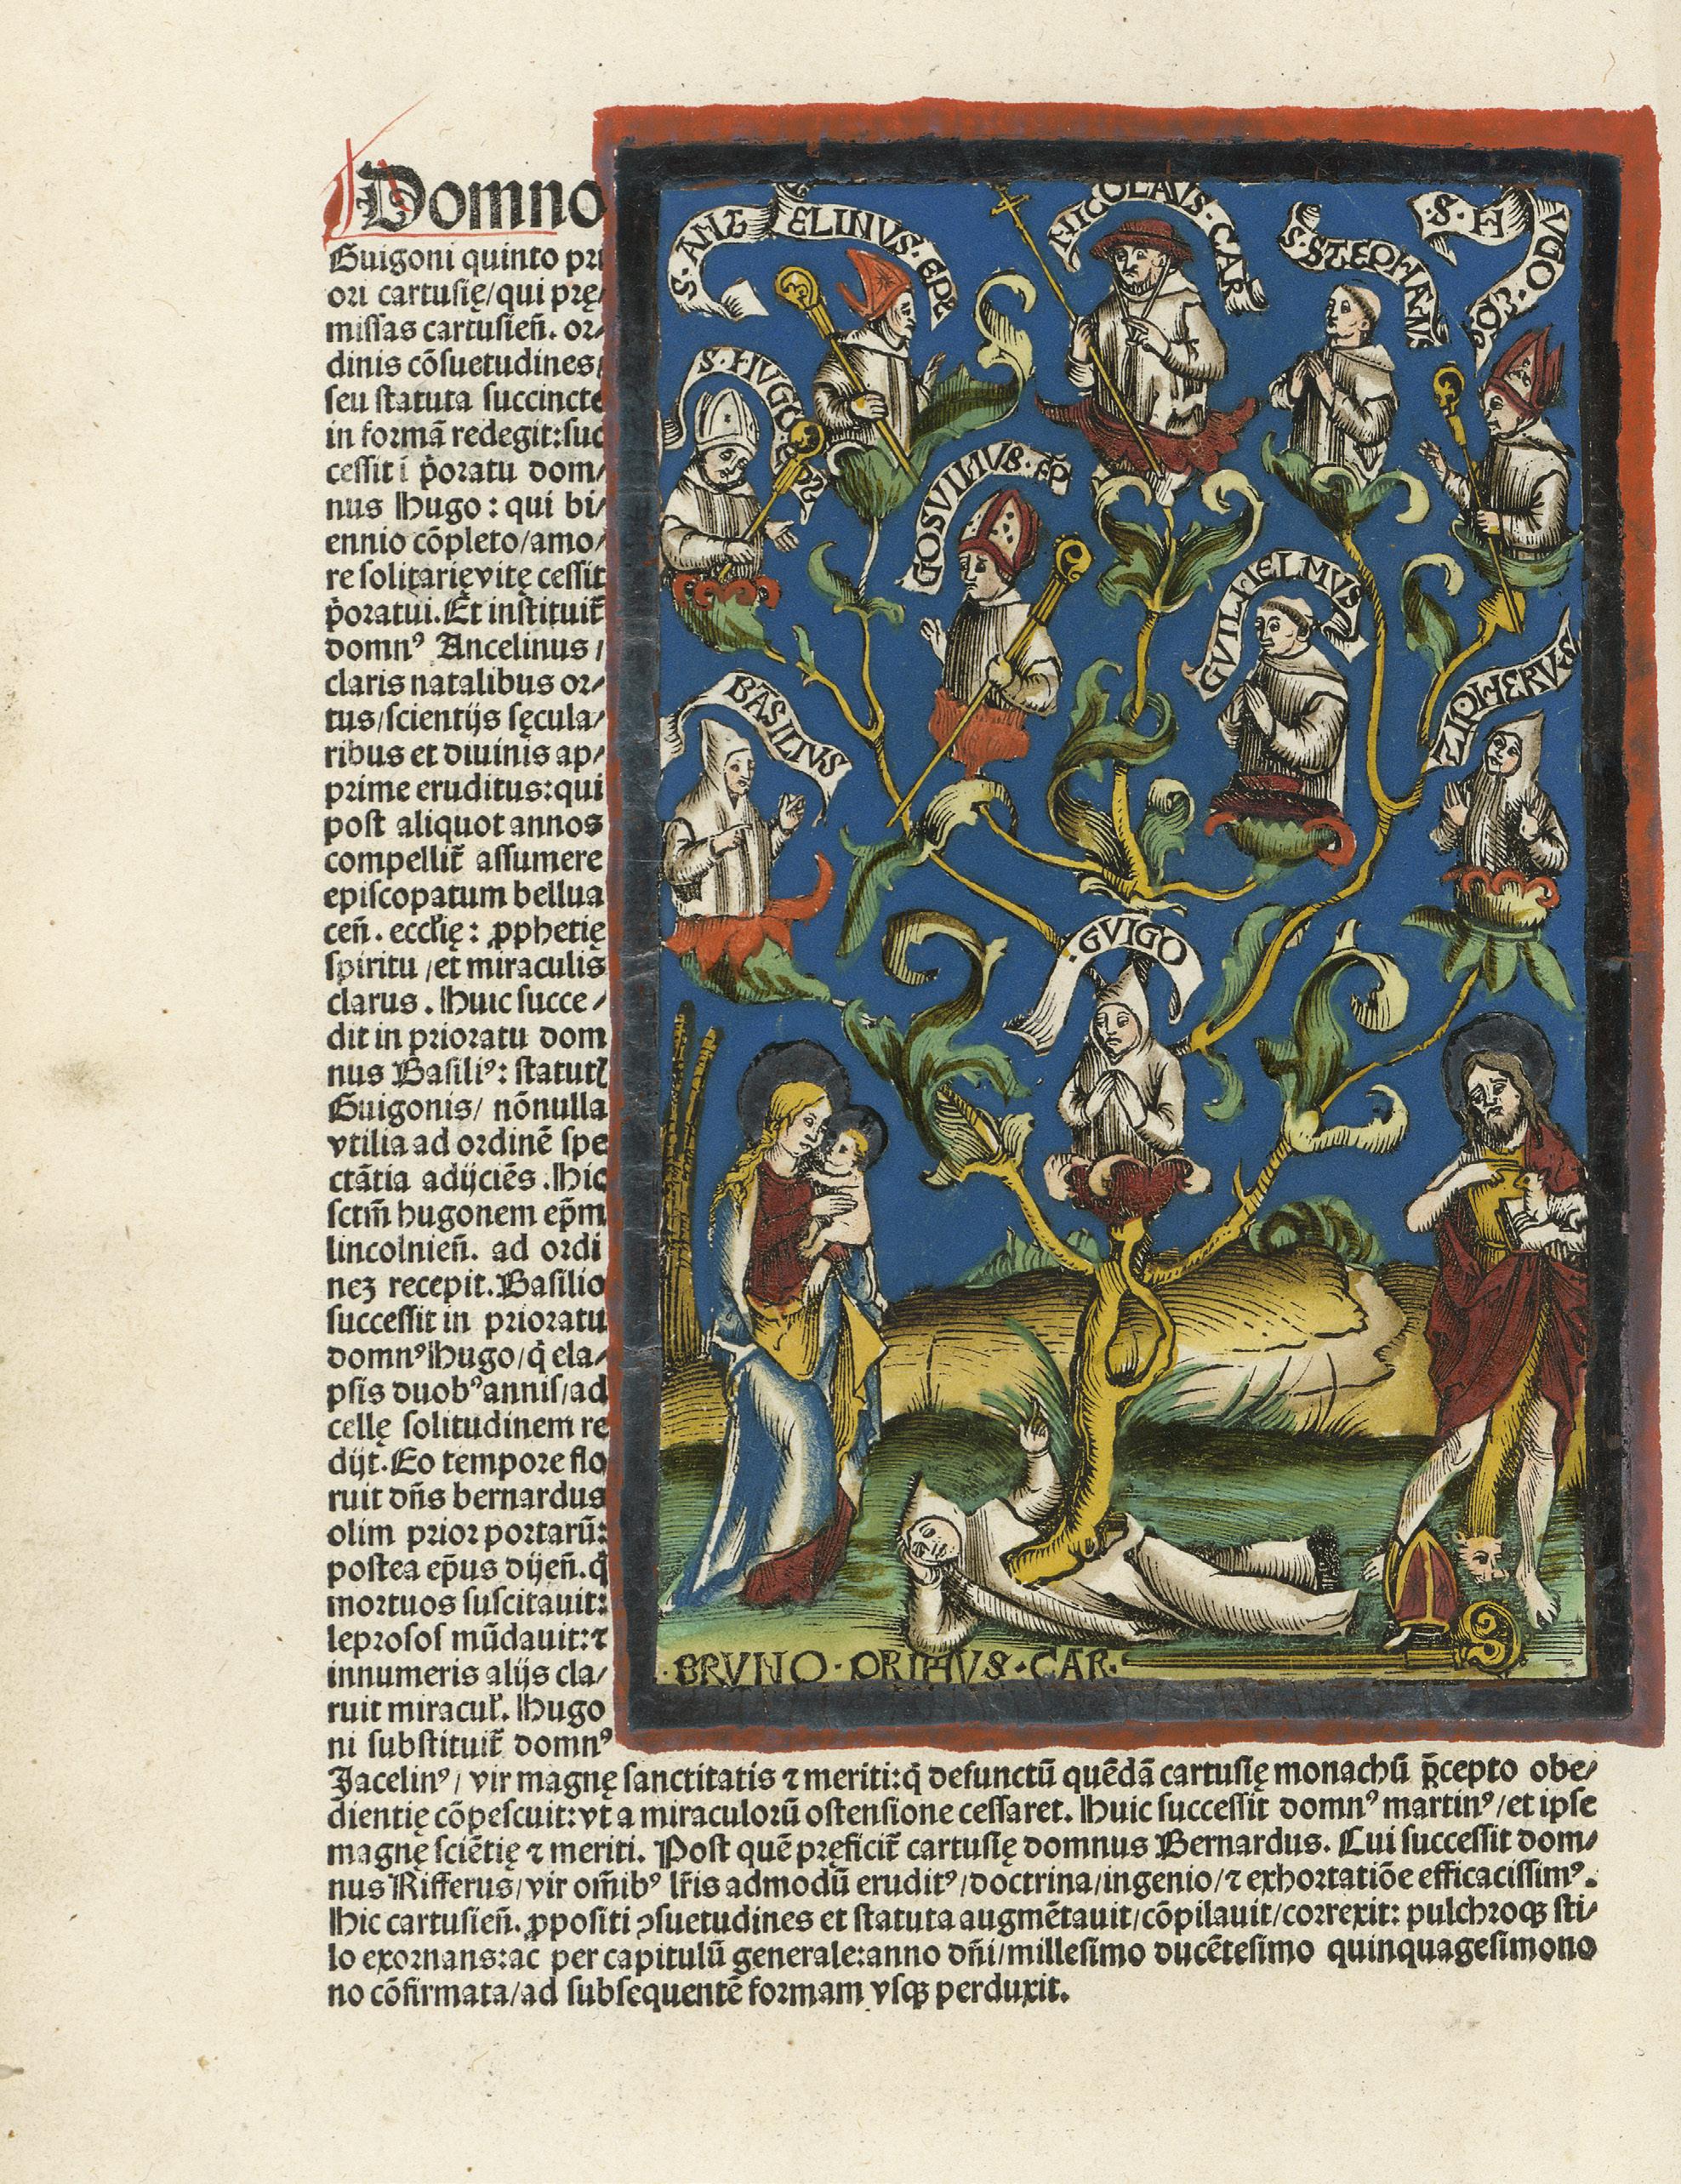 Domno
Guigoni quinto pri
ori cartusię/qui prę/
missas cartusieñ. or/
dinis cōsuetudines/
seu statuta succincte
in formā redegit: suc
cessit i p̄oratu dom/
nus Hugo: qui bi/
ennio cōpleto/amo/
re solitarię vitę cessit
p̄oratui. Et instituit̄
domnꝰ Ancelinus/
claris natalibus or/
tus/scientijs sęcula/
ribus et diuinis ap/
prime eruditus: qui
post aliquot annos
compellit̄ assumere
episcopatum bellua
ceñ. eccl'ię: ꝓphetię
spiritu/et miraculis
clarus. Huic succe/
dit in prioratu dom
nus Basiliꝰ: statutꝭ
Guigonis/ nōnulla
vtilia ad ordinē spe
ctātia adijciēs. Hic
sctm̄ hugonem ep̄m
lincolnieñ. ad ordi
neʒ recepit. Basilio
successit in prioratu
domnꝰ Hugo/q̇ ela/
psis duobꝰ annis/ad
cellę solitudinem re
dijt. Eo tempore flo
ruit dñs bernardus
olim prior portarū:
postea ep̄us dijeñ. q̇
mortuos suscitauit:
leprosos mūdauit: ⁊
innumeris alijs cla/
ruit miracul'. Hugo
ni substituit̄ domnꝰ
Jacelinꝰ/ vir magnę sanctitatis ⁊ meriti: q̇ defunctū quēdā cartusię monachū p̄cepto obe/
dientię cōpescuit: vt a miraculorū ostensione cessaret. Huic successit domnꝰ martinꝰ/et ipse
magnę sciētię ⁊ meriti. Post quē pręficit̄ cartusię domnus Bernardus. Cui successit dom/
nus Rifferus/vir om̄ibꝰ lr̄is admodū eruditꝰ/doctrina/ingenio/⁊ exhortatiōe efficacissimꝰ.
Hic cartusieñ. ꝓpositi ꝯsuetudines et statuta augmētauit/cōpilauit/correxit: pulchroqꝫ sti/
lo exornans: ac per capitulū generale: anno dñi/millesimo ducētesimo quinquagesimono
no cōfirmata/ad subsequentē formam vsqꝫ perduxit.
S. ANTELINVS. EPS
NICOLAVS. CAR
S. STEPHANVS
S. HVGO. BOR
S. HVGO. EPS
GOSVILIVS. EP
GVILHELMVS
BASILIVS
ZIPHERVS
GVIGO
BRVNO. PRIMVS. CAR.